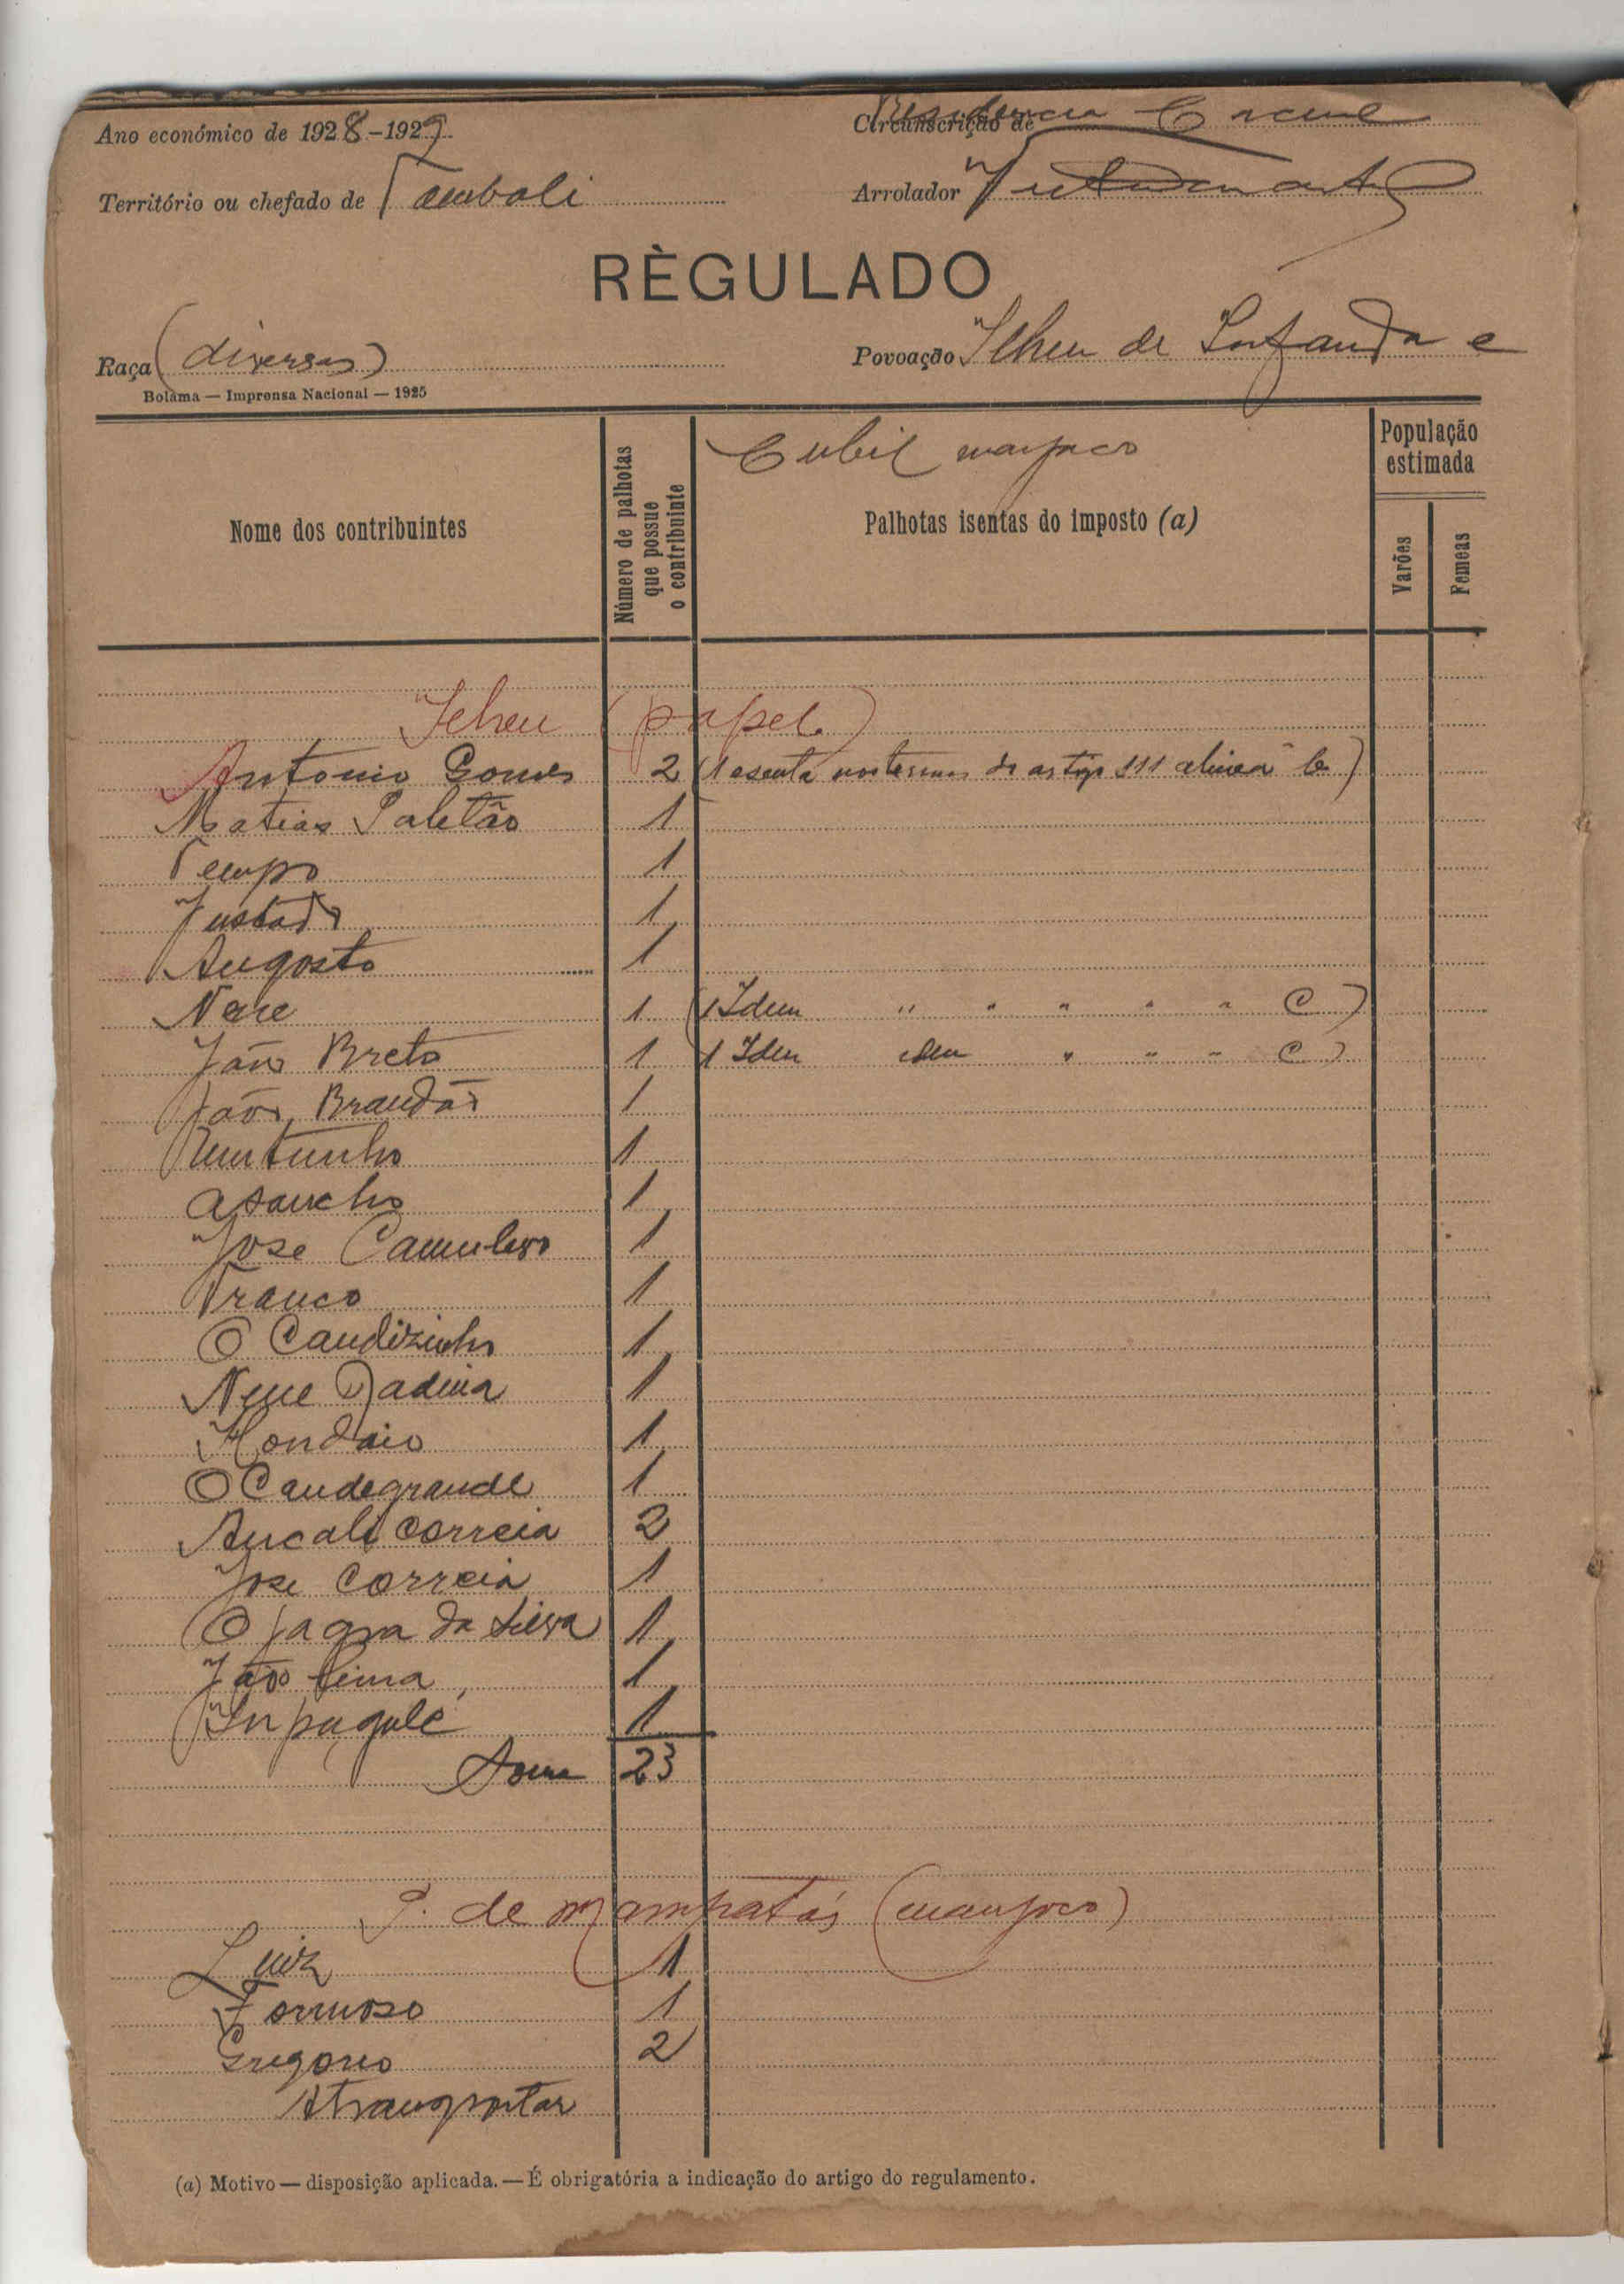 Ano económico de 1928-1929
Circunscrição de Residencia Cacine
Território ou chefado de Tombali
Arrolador
RÈGULADO
Raça (diversas)
Povoação Ilheu de Infanda e
Bolama — Imprensa Nacional — 1925
Cubil manjaco
Nome dos contribuintes
Número de palhotas que possue o contribuinte
Palhotas isentas do imposto (a)
População estimada
Varões
Femeas
Ilheu (papel)
Antonio Gomes 2 (1 esenta nos termos do artigo 111 alinea b)
Matias Paletão 1
Tempo 1
1
Augosto 1
Nene 1 (1 Idem " " " " " C)
João Breto 1 1 Idem idem " " " C)
João Brandão 1
1
1
Jose 1
Franco 1
O Candizinho 1
Nene 1
1
O Candegrande 1
Correia 2
Jose Correia 1
O Jagra da Silva 1
João Lima 1
1
Soma 23
P. de Mampatás (manjoco)
Luiz 1
Formoso 1
Gregorio 2
A transportar
(a) Motivo — disposição aplicada. — É obrigatória a indicação do artigo do regulamento.